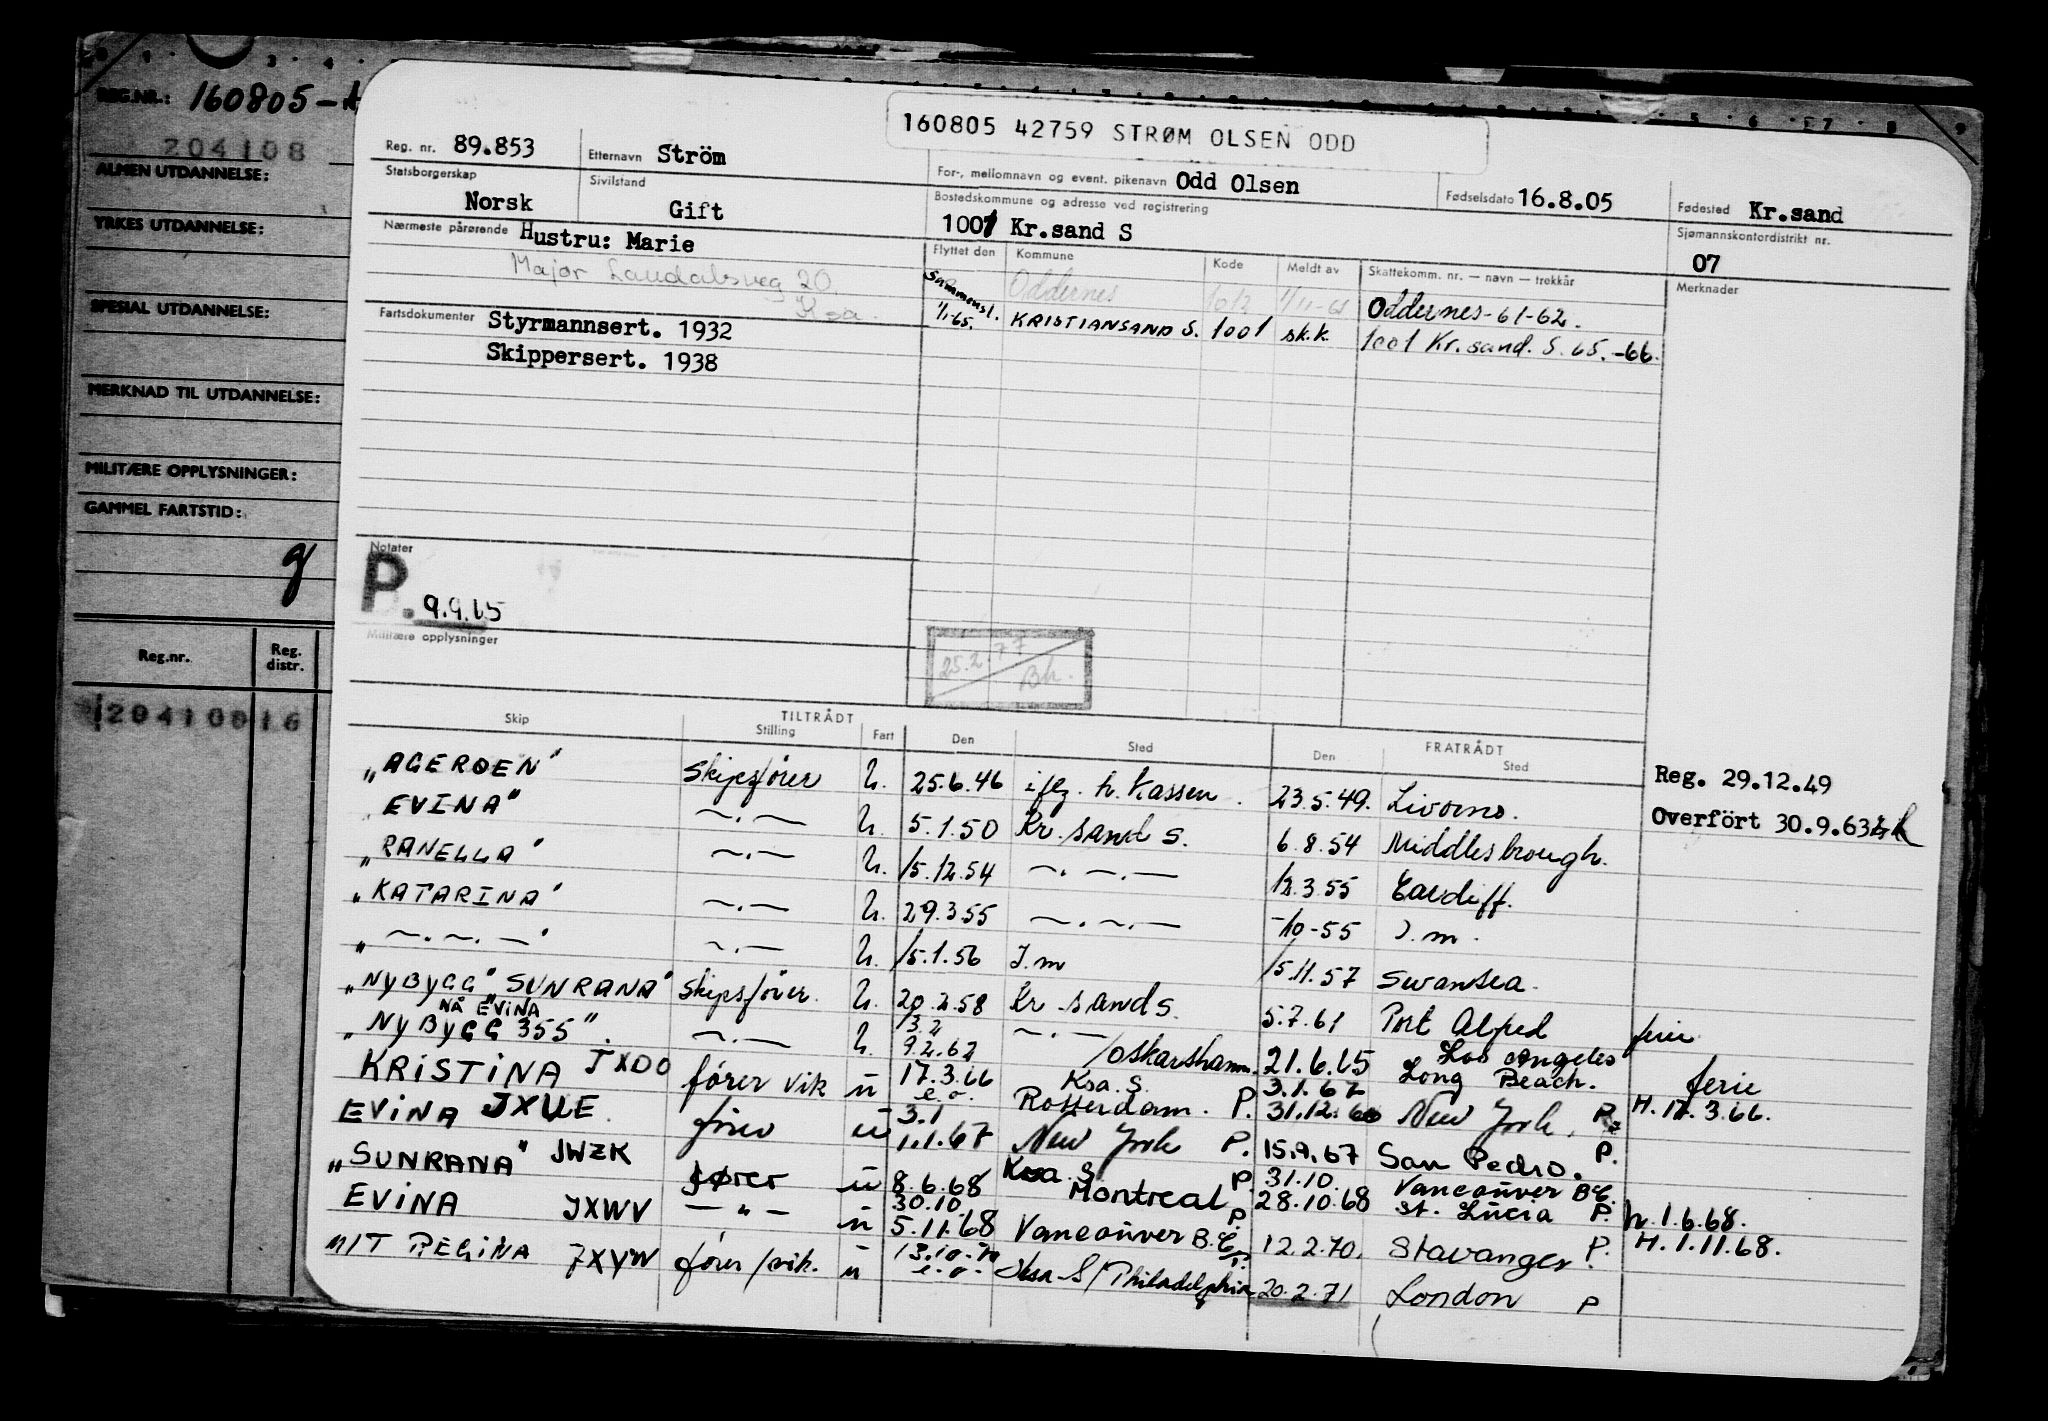 REG.NR.: 160805-
204108
ALMEN UTDANNELSE:
YRKES UTDANNELSE:
SPESIAL UTDANNELSE:
MERKNAD TIL UTDANNELSE:
MILITÆRE OPPLYSNINGER:
GAMMEL FARTSTID:
g
Reg.nr. Reg. distr.
160805 42759 STRØM OLSEN ODD
Reg. nr. 89.853 Etternavn Ström For-, mellomnavn og event. pikenavn Odd Olsen Fødselsdato 16.8.05 Fødested Kr.sand
Statsborgerskap Norsk Sivilstand Gift Bostedskommune og adresse ved registrering 1001 Kr.sand S Sjømannskontordistrikt nr. 07
Nærmeste pårørende Hustru: Marie
Major Laudalsveg 20
Ksa.
Flyttet den Kommune Kode Meldt av Skattekomm. nr. — navn — trekkår Merknader
Oddernes 1012 Oddernes-61-62.
Sammensl. 1/1-65. KRISTIANSAND S. 1001 sk.k. 1001 Kr.sand. S. 65.-66.
Fartsdokumenter Styrmannsert. 1932
Skippersert. 1938
Notater
P. 9.9.65
Militære opplysninger
25.2.77
Bh.
TILTRÅDT FRATRÅDT
Skip Stilling Fart Den Sted Den Sted
"AGERØEN" Skipsfører U. 25.6.46 iflg. h. Kassen. 23.5.49. Livorno. Reg. 29.12.49
EVINA" —.— U. 5.1.50 Kr.sand S. 6.8.54 Middlesbrough. Overfört 30.9.63
"RANELLA" —.— U. 15.12.54 —.—.— 12.3.55 Cardiff.
"KATARINA" —.— U. 29.3.55 —.—.— -/10-55 I.m.
"—.—.—" —.— U. 15.1.56 I.m 15.11.57 Swansea.
"NYBYGG" "SUNRANA" Skipsfører. U. 20.2.58 Kr.sand S. 5.7.61 Port Alfred ferie
NÅ EVINA
"NYBYGG 355". —.— U. 13.2 9.2.62 —.— /Oskarshamn. 21.6.65 Los Angeles
KRISTINA JXDO fører vik u 17.3.66 e.o. Ksa. S. 3.1.67 Long Beach. ferie
EVINA JXUE. fører u 3.1 Rotterdam. P. 31.12.66 New York. P. H. 17.3.66.
1.1.67 New York P. 15.9.67 San Pedro. P.
"SUNRANA" JWZK fører u 8.6.68 Ksa. S P. 31.10. Vancouver B.C.
EVINA JXWV —"— u 30.10. Montreal P 28.10.68 St. Lucia P. h. 1.6.68.
5.11.68 Vancouver B.C. P. 12.2.70. Stavanger P. H. 1.11.68.
M/T REGINA JXVW fører/vik. u 13.10.70 e.o. Ksa-S/Philadelphia 20.2.71 London P